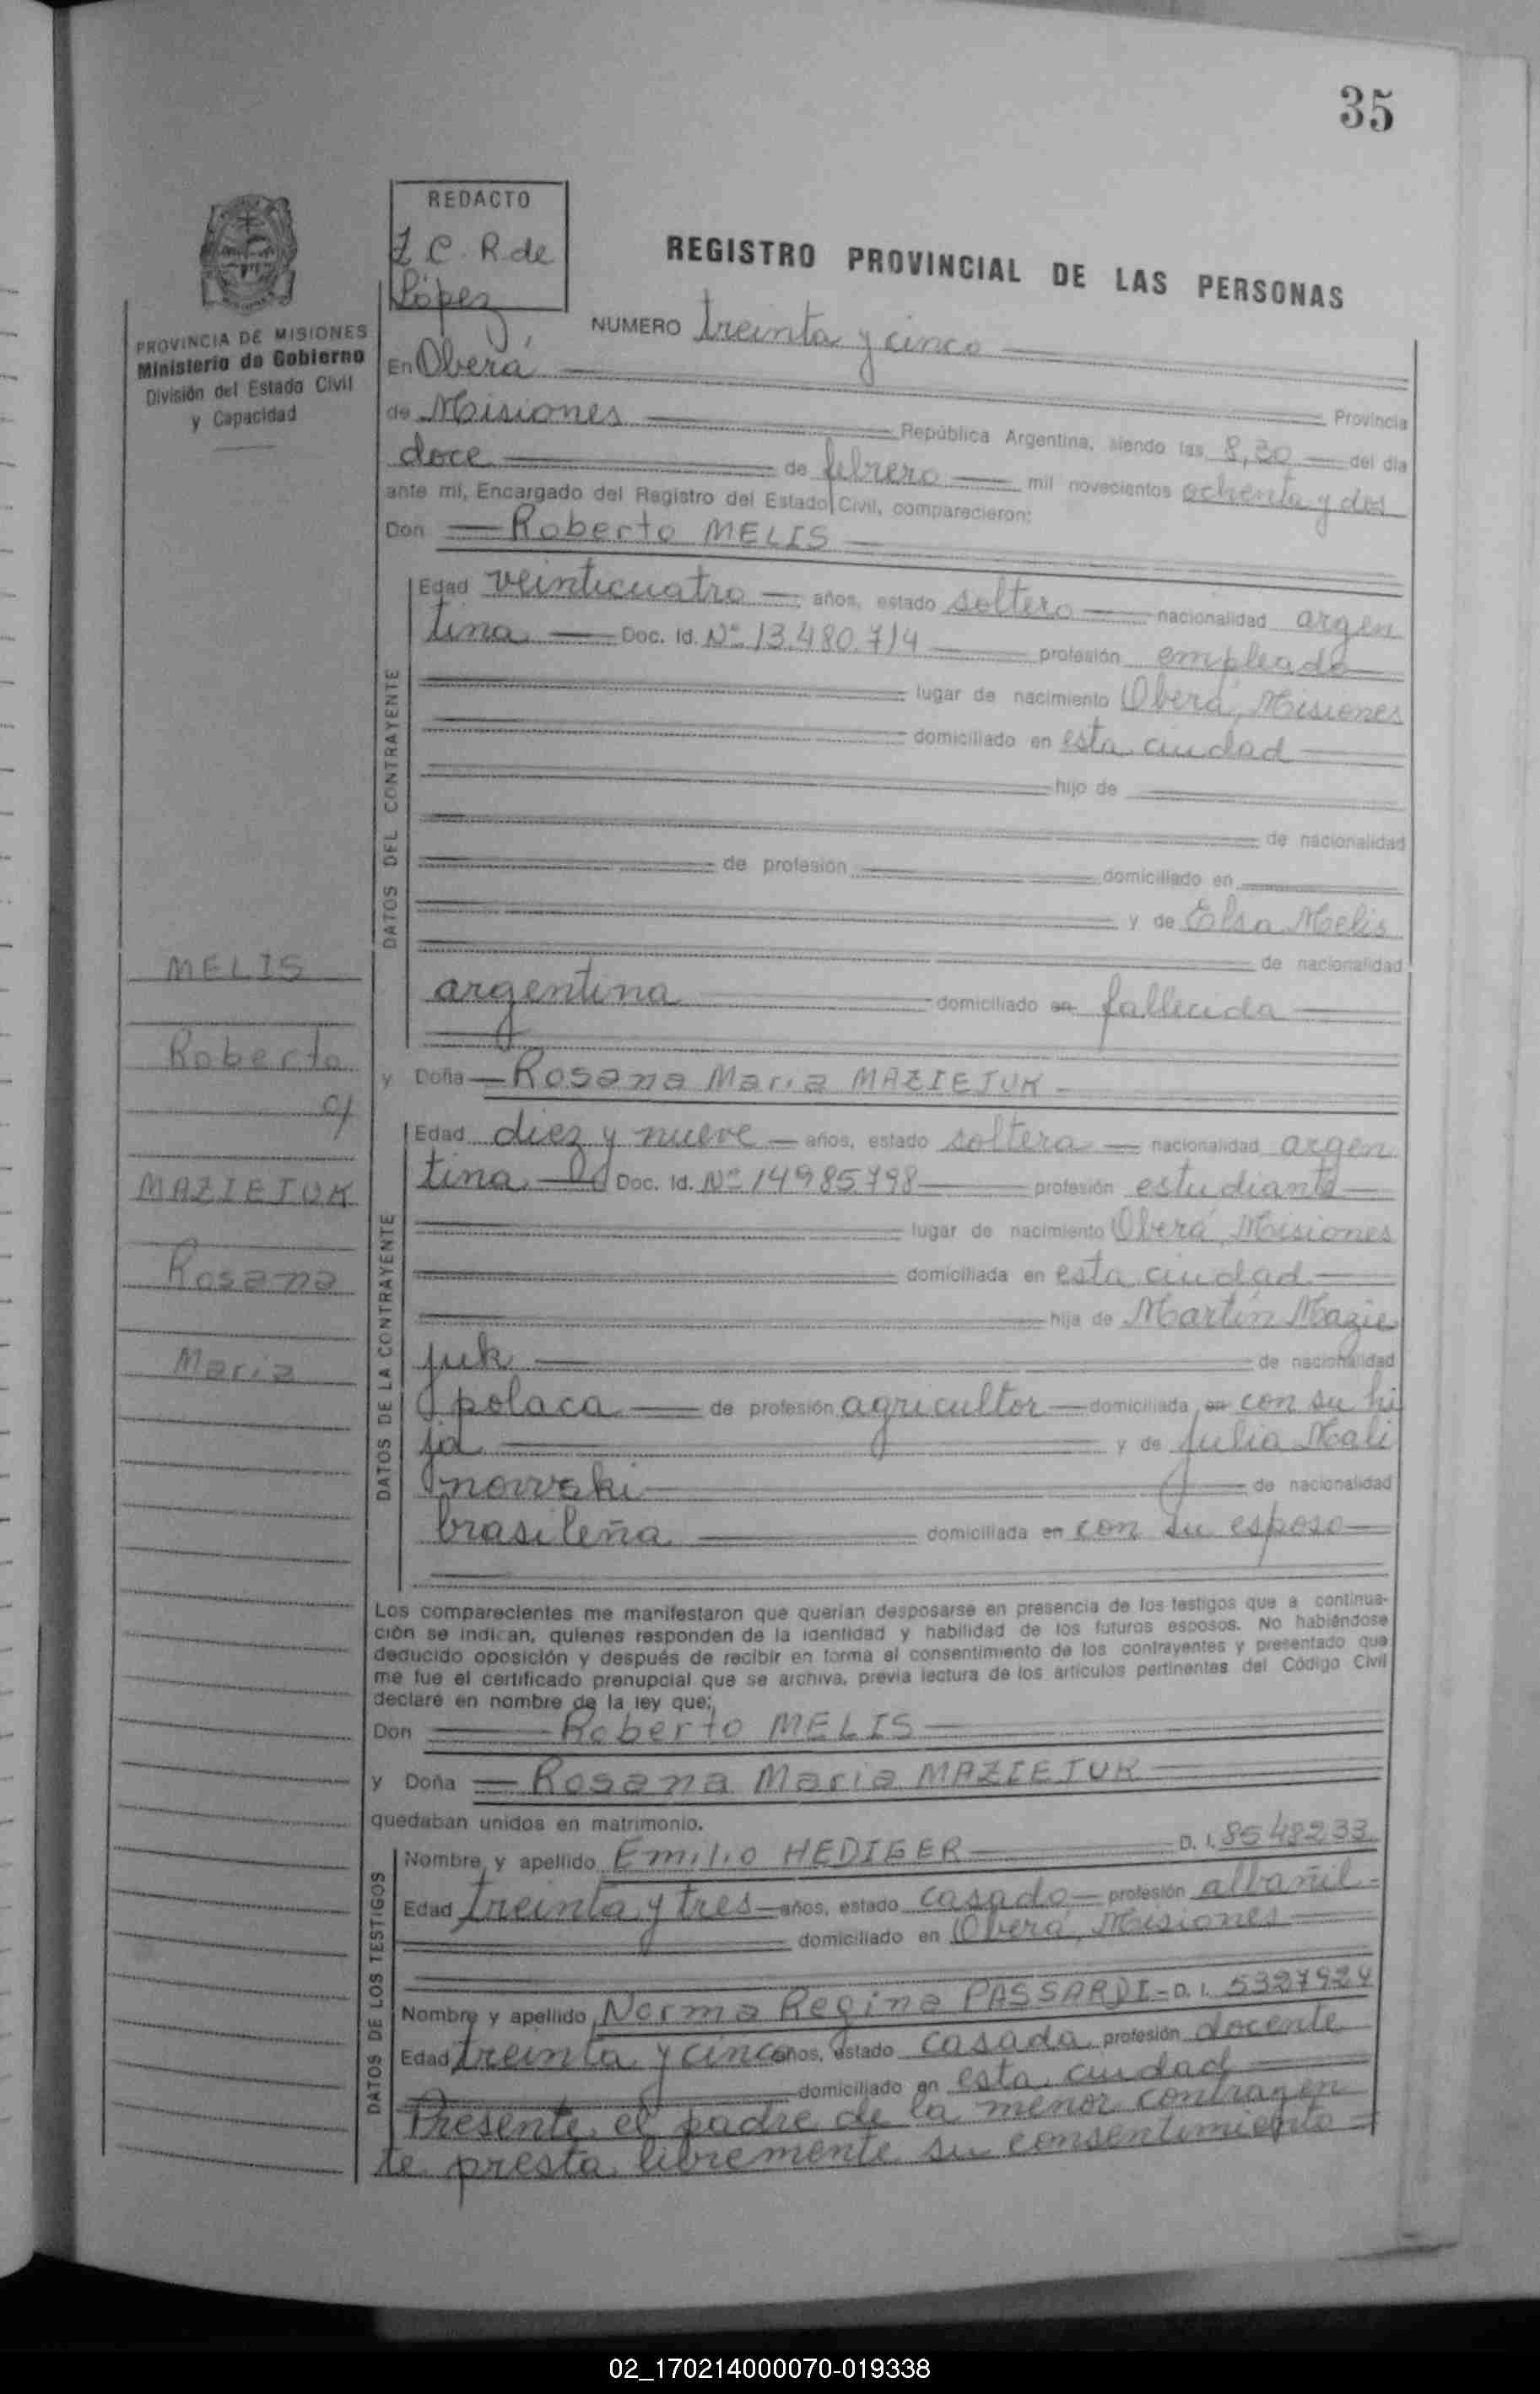 35
REDACTO
C. R. de
López
REGISTRO PROVINCIAL DE LAS PERSONAS
PROVINCIA DE MISIONES
Ministerio de Gobierno
División del Estado Civil
y Capacidad
NUMERO treinta y cinco
En Oberá Provincia
de Misiones República Argentina, siendo las 8,30 del día
doce de febrero mil novecientos ochenta y dos
ante mí, Encargado del Registro del Estado Civil, comparecieron:
Don Roberto MELIS
DATOS DEL CONTRAYENTE
Edad veinticuatro años, estado soltero nacionalidad argen
tina Doc. Id. Nº 13.480.714 profesión empleado
lugar de nacimiento Oberá, Misiones
domiciliado en esta ciudad
hijo de
de nacionalidad
de profesión domiciliado en
y de Elsa Melis
de nacionalidad
argentina domiciliado en fallecida
y Doña Rosana Maria MAZIEJUK
DATOS DE LA CONTRAYENTE
Edad diez y nueve años, estado soltera nacionalidad argen
tina Doc. Id. Nº 14985798 profesión estudiante
lugar de nacimiento Oberá, Misiones
domiciliada en esta ciudad
hija de Martín Mazie
juk de nacionalidad
polaca de profesión agricultor domiciliada en con su hi
ja y de Julia Mali
nowski de nacionalidad
brasileña domiciliada en con su esposo
MELIS
Roberto
c/
MAZIEJUK
Rosana
Maria
Los comparecientes me manifestaron que querían desposarse en presencia de los testigos que a continua-
ción se indican, quienes responden de la identidad y habilidad de los futuros esposos. No habiéndose
deducido oposición y después de recibir en forma el consentimiento de los contrayentes y presentado que
me fue el certificado prenupcial que se archiva, previa lectura de los artículos pertinentes del Código Civil
declaré en nombre de la ley que:
Don Roberto MELIS
y Doña Rosana Maria MAZIEJUK
quedaban unidos en matrimonio.
DATOS DE LOS TESTIGOS
Nombre y apellido Emilio HEDIGER D. I. 8548233
Edad treinta y tres años, estado casado profesión albañil
domiciliado en Oberá, Misiones
Nombre y apellido Norma Regina PASSARDI D. I. 5327924
Edad treinta y cinco años, estado casada profesión docente
domiciliado en esta ciudad
Presente el padre de la menor contrayen
te presta libremente su consentimiento
02_170214000070-019338